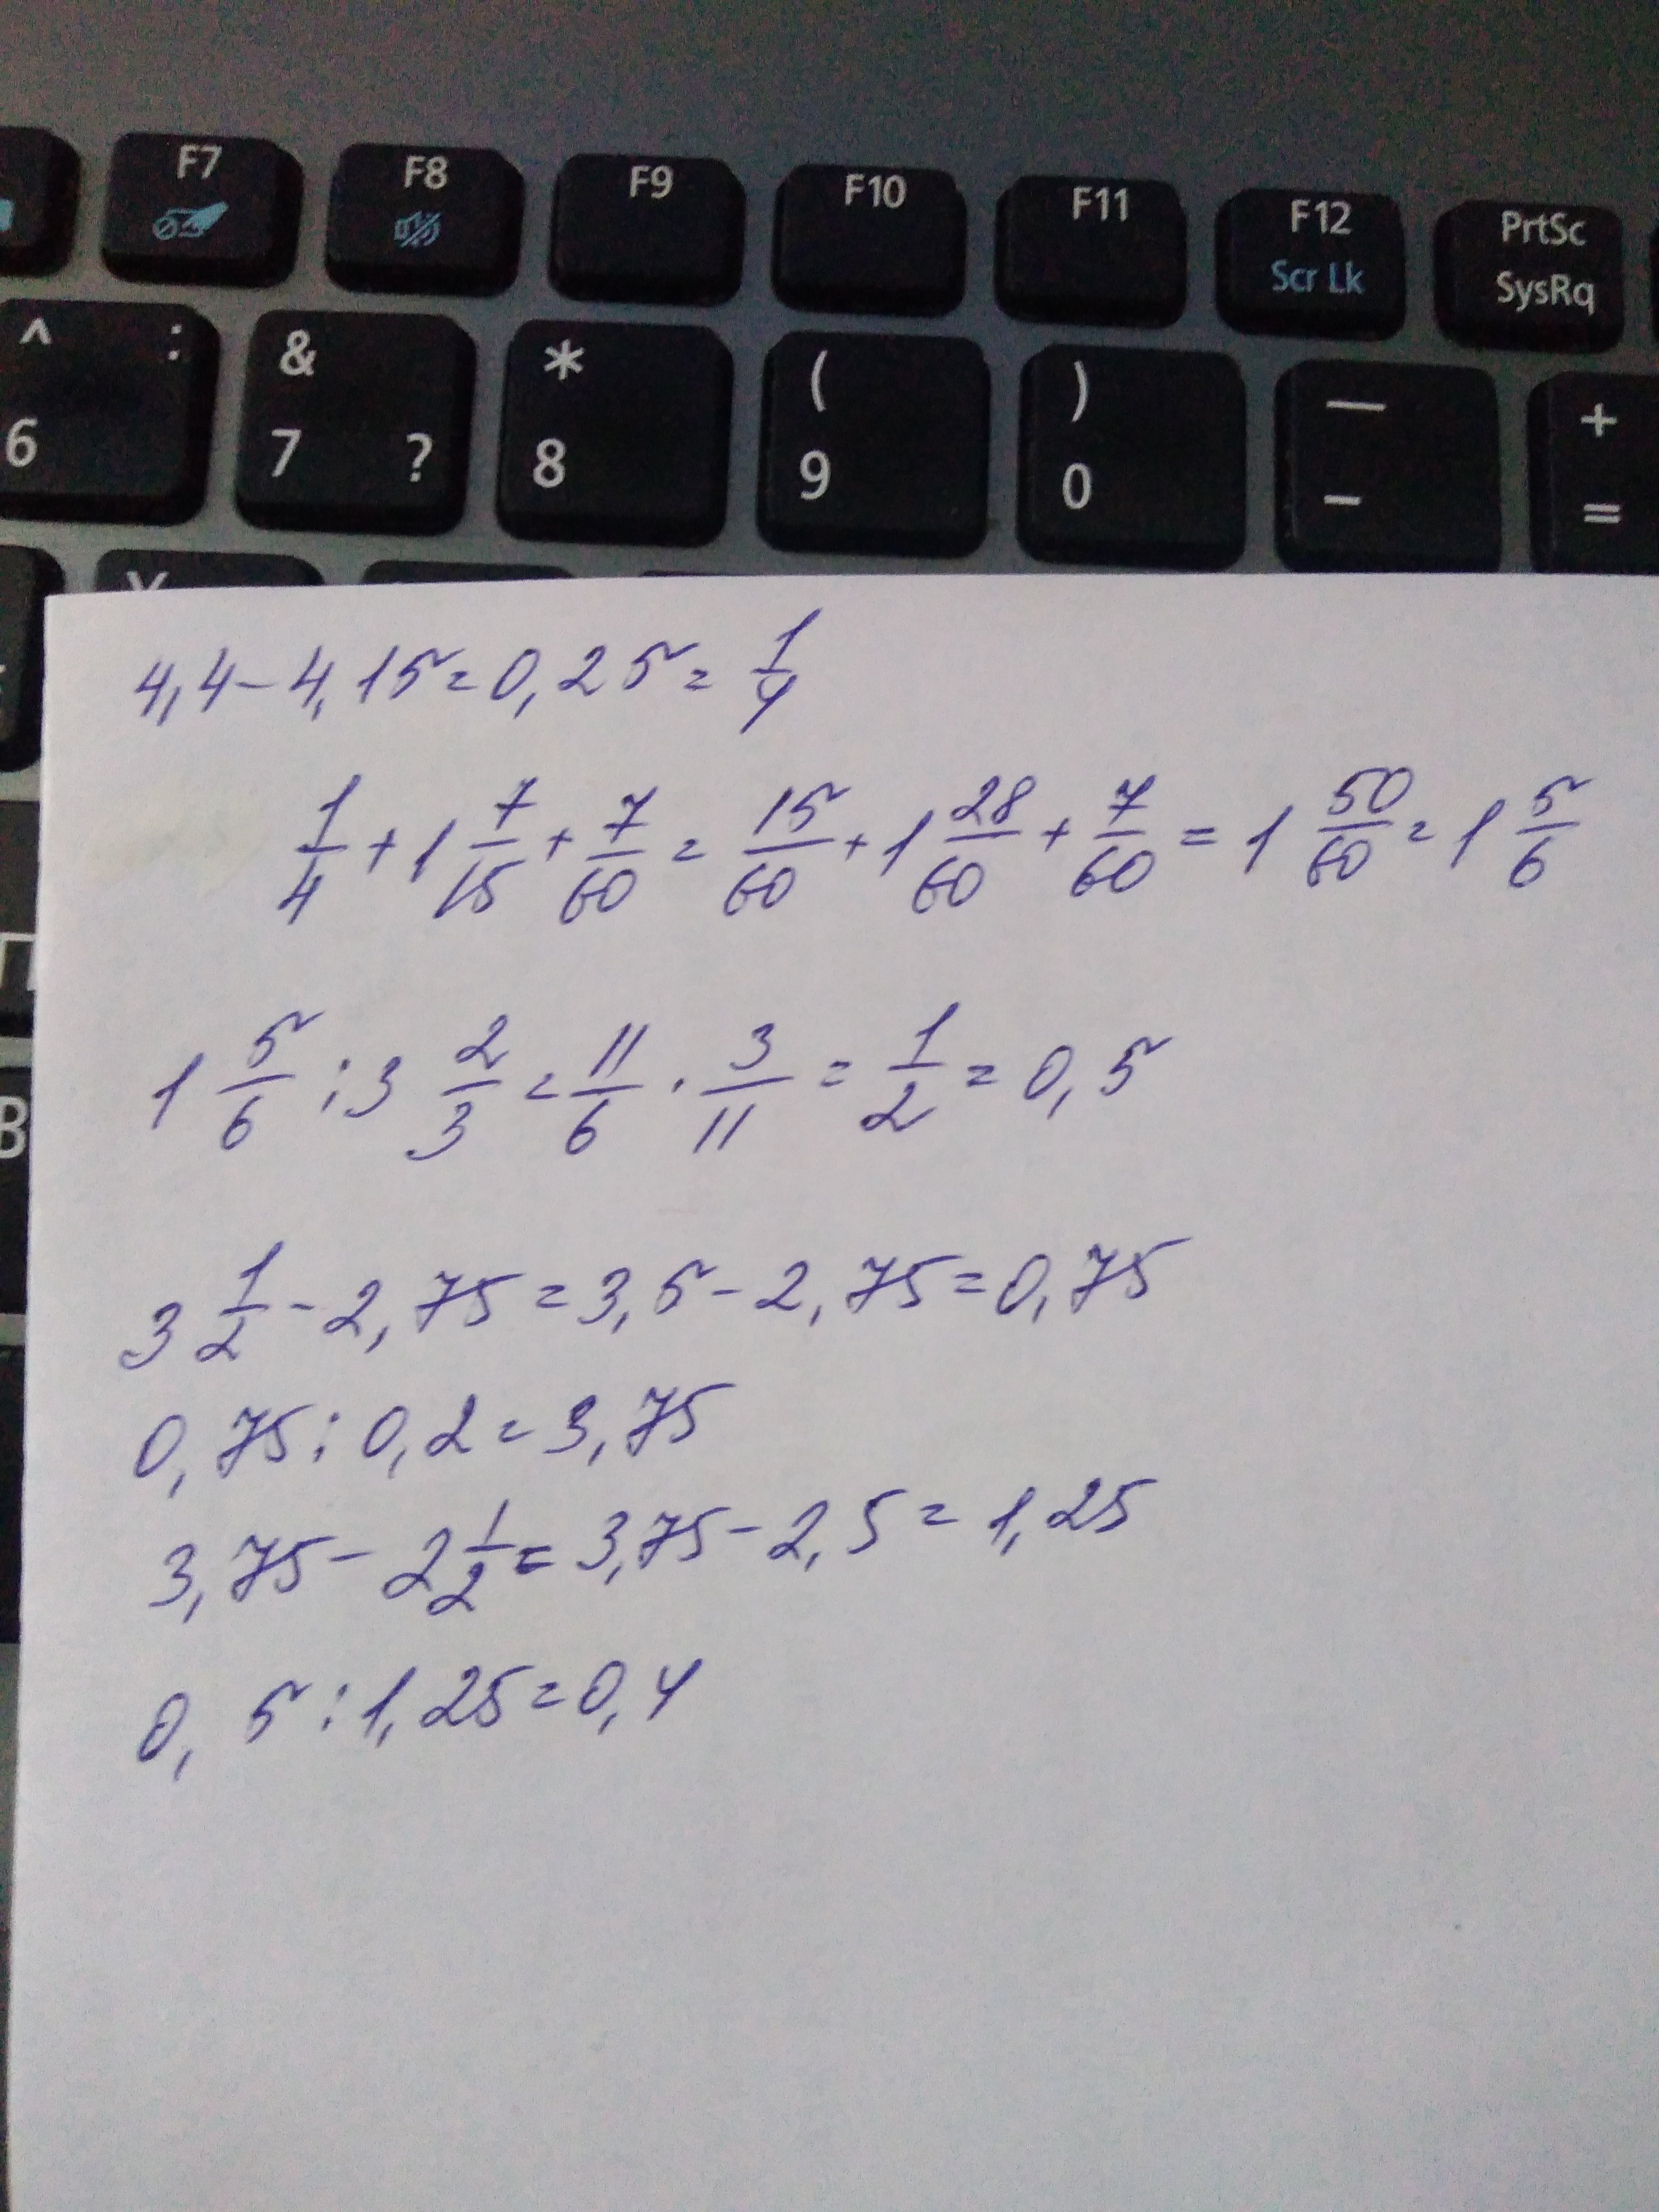 F7 F8 F9 F10 F11 F12 PrtSc
Scr Lk SysRq
^ : & * ( ) — +
6 7 ? 8 9 0 – =
4,4 - 4,15 = 0,25 = 1/4
1/4 + 1 7/15 + 7/60 = 15/60 + 1 28/60 + 7/60 = 1 50/60 = 1 5/6
1 5/6 : 3 2/3 = 11/6 · 3/11 = 1/2 = 0,5
3 1/2 - 2,75 = 3,5 - 2,75 = 0,75
0,75 : 0,2 = 3,75
3,75 - 2 1/2 = 3,75 - 2,5 = 1,25
0,5 : 1,25 = 0,4